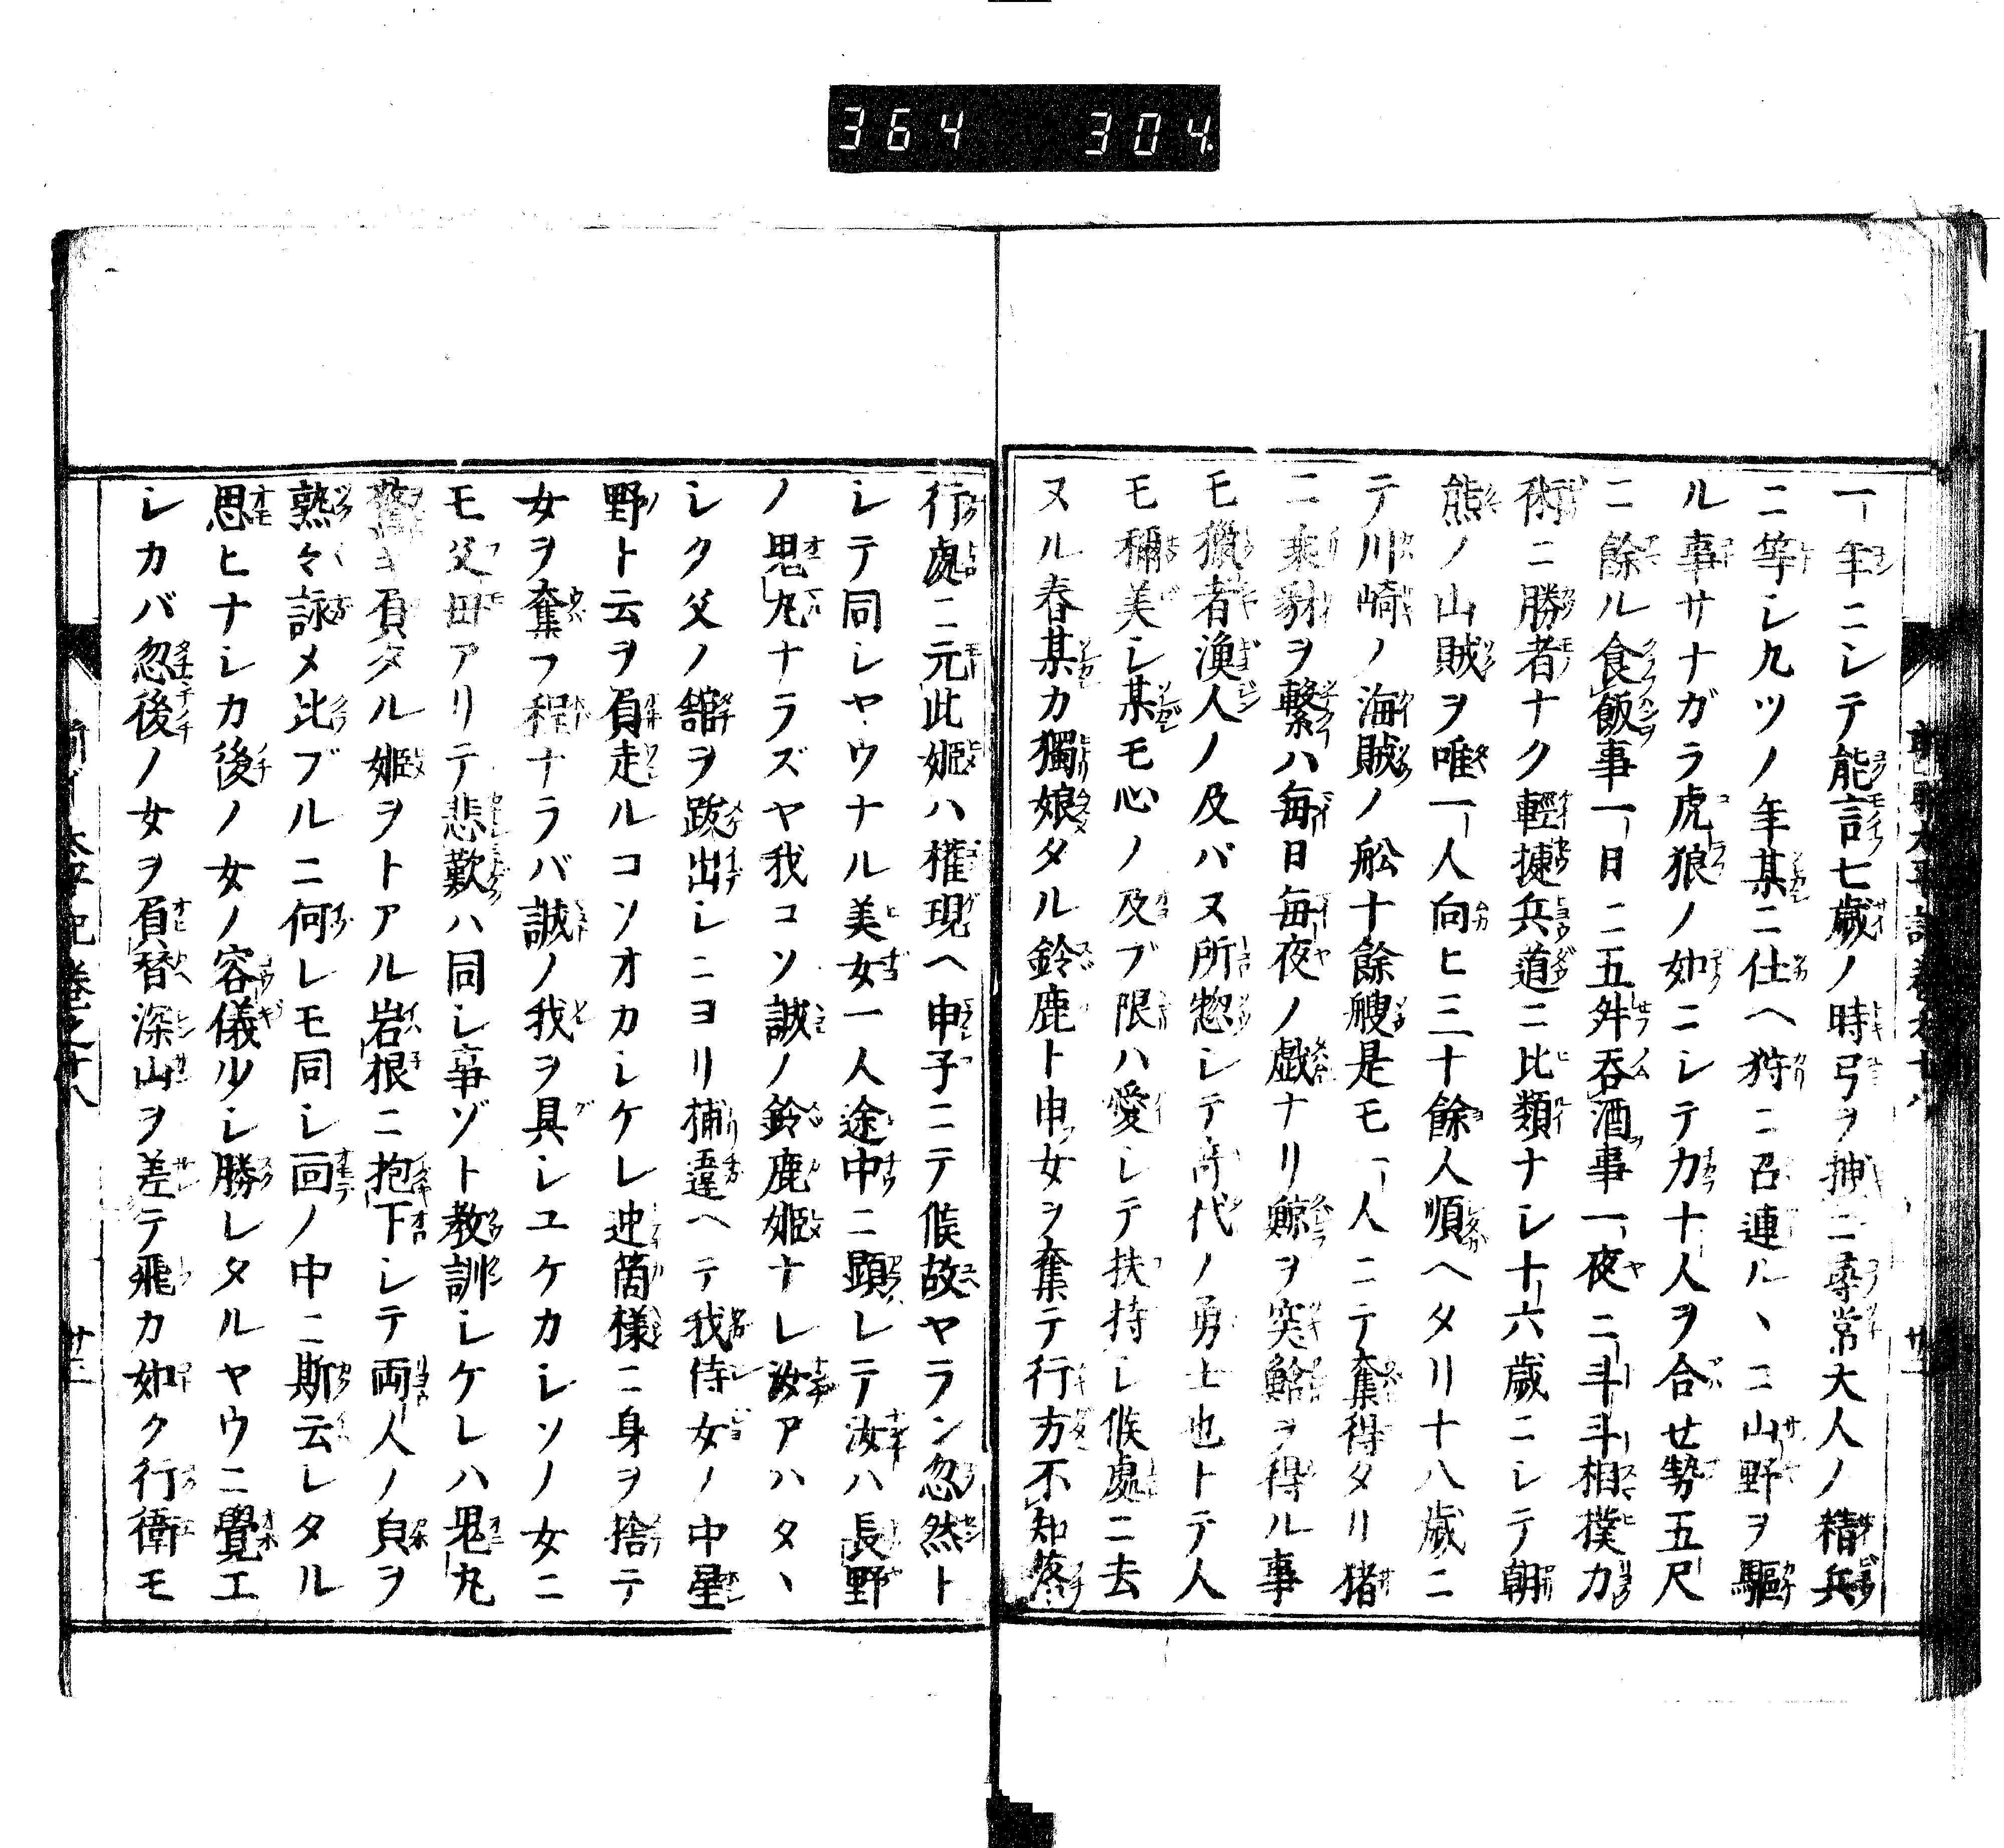 364 304
一年ニシテ能言七歳ノ時弓ヲ抻ニ尋常大人ノ精兵
ニ等シ九ツノ年某ニ仕ヘ狩ニ召連ルヽニ山野ヲ驅
ル事サナガラ虎狼ノ如ニシテ力十人ヲ合セ勢五尺
ニ餘ル食飯事一日ニ五舛呑酒事一夜ニ斗斗相撲力
術ニ勝者ナク輕捷兵道ニ比類ナシ十六歳ニシテ朝
熊ノ山賊ヲ唯一人向ヒ三十餘人順ヘタリ十八歳ニ
テ川崎ノ海賊ノ舩十餘艘是モ一人ニテ奪得タリ猪
ニ乗豺ヲ繋ハ毎日毎夜ノ戯ナリ鯨ヲ突鯰ヲ得ル事
モ獵者漁人ノ及バヌ所惣シテ希代ノ勇士也トテ人
モ稱美シ某モ心ノ及ブ限ハ愛シテ扶持シ候處ニ去
ヌル春某カ獨娘タル鈴鹿ト申女ヲ奪テ行方不知落
行處ニ元此姫ハ權現ヘ申子ニテ候故ヤラン忽然ト
シテ同シヤウナル美女一人途中ニ顕レテ汝ハ長野
ノ鬼丸ナラズヤ我コソ誠ノ鈴鹿姫ナレ汝アハタヽ
シク父ノ舘ヲ跋出シニヨリ捕違ヘテ我侍女ノ中星
野ト云ヲ負走ルコソオカシケレ迚箇様ニ身ヲ捨テ
女ヲ奪フ程ナラバ誠ノ我ヲ具シユケカシソノ女ニ
モ父母アリテ悲歎ハ同シ事ゾト教訓シケレハ鬼丸
驚キ負タル姫ヲトアル岩根ニ抱下シテ両人ノ皃ヲ
熟々詠メ比ブルニ何レモ同シ面ノ中ニ斯云レタル
思ヒナシカ後ノ女ノ容儀少シ勝レタルヤウニ覺エ
シカバ忽後ノ女ヲ負替深山ヲ差テ飛カ如ク行衛モ
前 太平記巻之十八 廿二